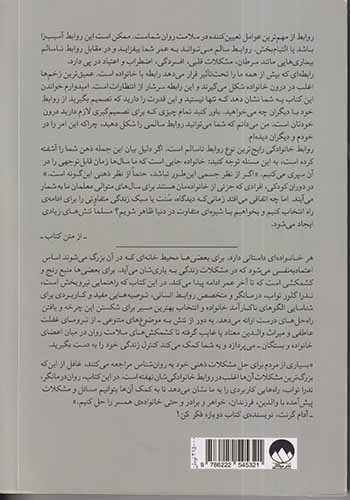 روابط از مهم‌ترین عوامل تعیین‌کننده در سلامت روان شماست. ممکن است این روابط آسیب‌زا
باشد یا التیام‌بخش. روابط سالم می‌تواند به عمر شما بیفزاید و در مقابل روابط ناسالم
بیماری‌هایی مانند سرطان، مشکلات قلبی، افسردگی، اضطراب و اعتیاد در پی دارد.
رابطه‌ای که بیش از همه ما را تحت‌تأثیر قرار می‌دهد رابطه با خانواده است. عمیق‌ترین زخم‌ها
اغلب در درون خانواده شکل می‌گیرند و این رابطه سرشار از انتظارات است. امیدوارم خواندن
این کتاب به شما نشان دهد که تنها نیستید و این قدرت را دارید که تصمیم بگیرید از روابط
خود با دیگران چه می‌خواهید. باور کنید تمام چیزی که برای تصمیم‌گیری لازم دارید درون
خودتان است. من می‌دانم که شما می‌توانید روابط سالمی را شکل دهید، چراکه این امر را در
خودم و دیگران دیده‌ام.
روابط خانوادگی رایج‌ترین نوع روابط ناسالم است. اگر دلیل بیان این جمله ذهن شما را آشفته
کرده است، به این مسئله توجه کنید: خانواده جایی است که ما سال‌ها زمان قابل‌توجهی را در
آن سپری می‌کنیم. «اگر از نظر جسمی این‌طور نباشد، حتماً از نظر ذهنی این‌گونه است.»
در دوران کودکی، افرادی که جزئی از خانواده‌مان هستند برای سال‌های متوالی معلمان ما به شمار
می‌آیند. اما چه اتفاقی می‌افتد زمانی‌که دیدگاه، سنت یا سبک زندگی متفاوتی را برای ادامه‌ی
راه انتخاب کنیم و بخواهیم با شیوه‌ای متفاوت در دنیا ظاهر شویم؟ مسلماً تنش‌های زیادی
ایجاد می‌شود.
ـ از متن کتاب ـ
هر خانواده‌ای داستانی دارد. برای بعضی‌ها محیط خانه‌ای که در آن بزرگ می‌شوند اساس
اعتمادبه‌نفسی می‌شود که در مشکلات زندگی به یاری‌شان می‌آید. برای بعضی‌ها منبع رنج و
کشمکشی است که تا آخر عمر ادامه پیدا می‌کند. در این کتاب که راهنمایی نیروبخش است،
ندرا گلوور تواب، درمانگر و متخصص روابط انسانی، توصیه‌هایی مفید و کاربردی برای
شناسایی الگوهای ناکارآمد خانواده و انتخاب بهترین مسیر برای شکستن این چرخه و یافتن
راه‌حل‌های درست ارائه می‌دهد. به دور از تنش به موضوع‌های متنوعی ـ از تروماهای غفلت
عاطفی و میراث والدین معتاد یا غایب گرفته تا کشمکش‌های سلامت روان در میان اعضای
خانواده و بستگان ـ می‌پردازد و به شما کمک می‌کند کنترل زندگی خود را به دست بگیرید.
«بسیاری از مردم برای حل مشکلات ذهنی خود به روان‌شناس مراجعه می‌کنند، غافل از این‌که
بزرگ‌ترین مشکلات آن‌ها اغلب در روابط خانوادگی‌شان نهفته است. در این کتاب، روان‌درمانگر،
ندرا تواب، راه‌هایی کاربردی را به ما نشان می‌دهد تا به کمک آن‌ها بتوانیم مسائل و مشکلات
پیش‌آمده با والدین، فرزندان، خواهر و برادر و حتی خانواده‌ی همسر را حل کنیم.»
ـ آدام گرنت، نویسنده‌ی کتاب دوباره فکر کن!
9 786222 545321